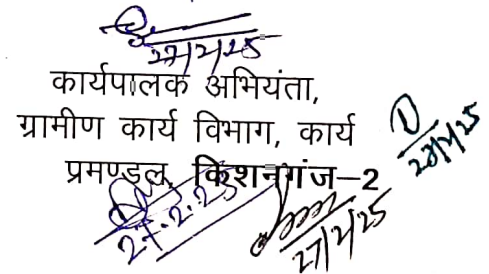 27/2/25
कार्यपालक अभियंता,
ग्रामीण कार्य विभाग, कार्य
प्रमण्डल, किशनगंज–2
27/2/25
27.2.25
27/2/25